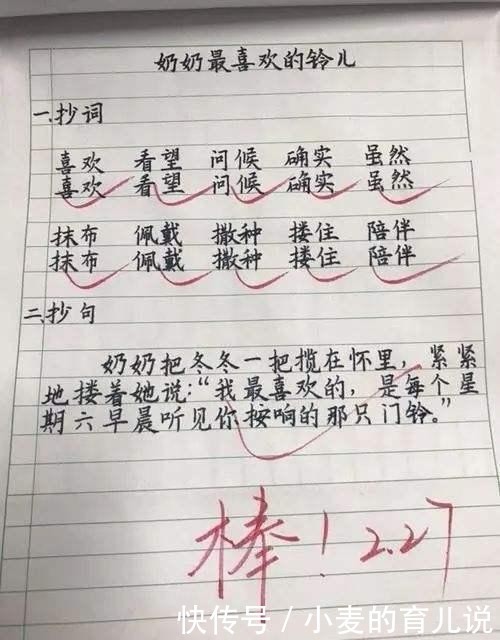 奶奶最喜欢的铃儿
一.抄词
喜欢 看望 问候 确实 虽然
喜欢 看望 问候 确实 虽然
抹布 佩戴 撒种 搂住 陪伴
抹布 佩戴 撒种 搂住 陪伴
二.抄句
奶奶把冬冬一把揽在怀里，紧紧
地搂着她说：“我最喜欢的，是每个星
期六早晨听见你按响的那只门铃。”
棒！2.27
快传号 / 小麦的育儿说